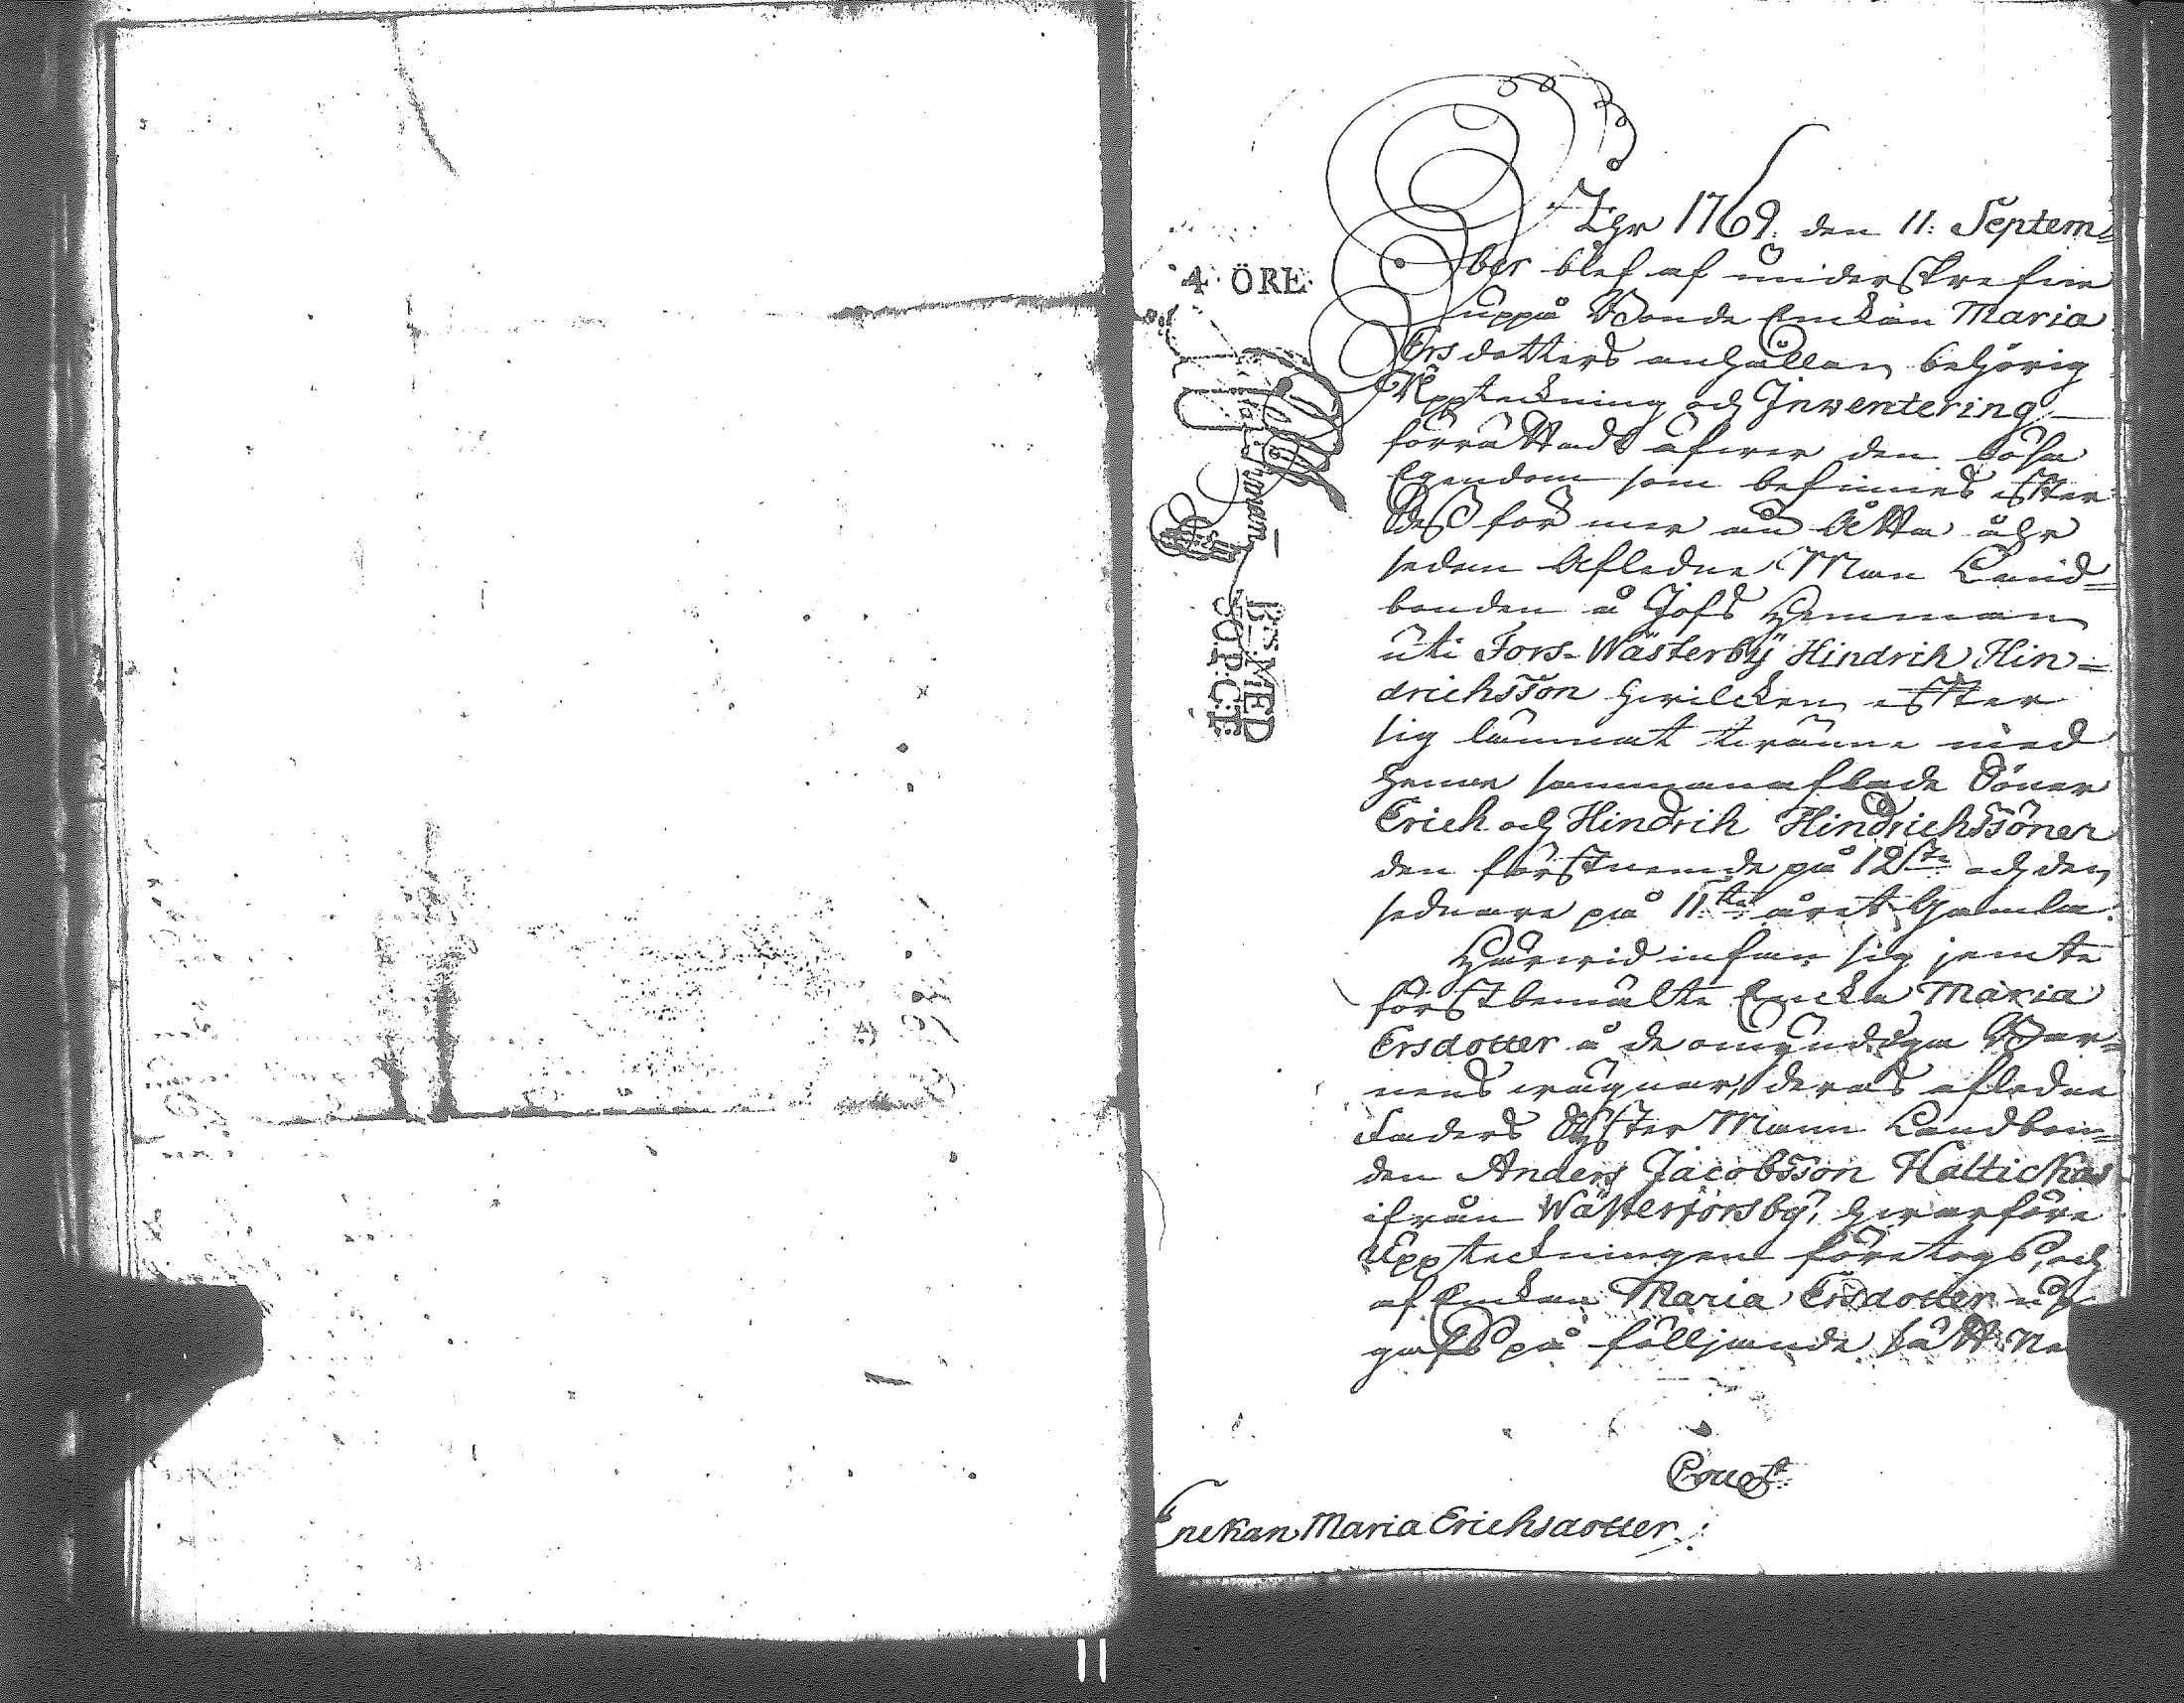 Åhr 1769. den 11: Septem=
ber blef af underskrefne
4 ÖRE
uppå Bonde Enckan Maria
Ersdotters anhållan behörig
Uppteckning och Inventering
förrättadt öfwer den lösa
Egendom som befinnes efter
dess för mer än Åtta åhr
sedan Afledne Man Land=
bonden å Jofs Hemman
uti Fors-Wästerbÿ Hindrich Hin=
drichsson hwilcken efter
sig lämnat twänne med
henne sammanaflade Söner
Erich och Hindrih Hindrichssöner
den förstnemde på 12:te och den
sednare på 11:te året Gamla.
Härwid infan sig jemte
förstbemälte Encka Maria
Ersdotter å de omÿndiga Bar=
nens wägnar, deras afledne
Faders Syster Mann Landbon=
den Anders Jacobsson Haltickas
ifrån Wästerforsbÿ, hwarföre
Uppteckningen företogs, och
af Enckan Maria Ersdotter
gafs på följande sätt
BMED
Enckan Maria Erichsdotter